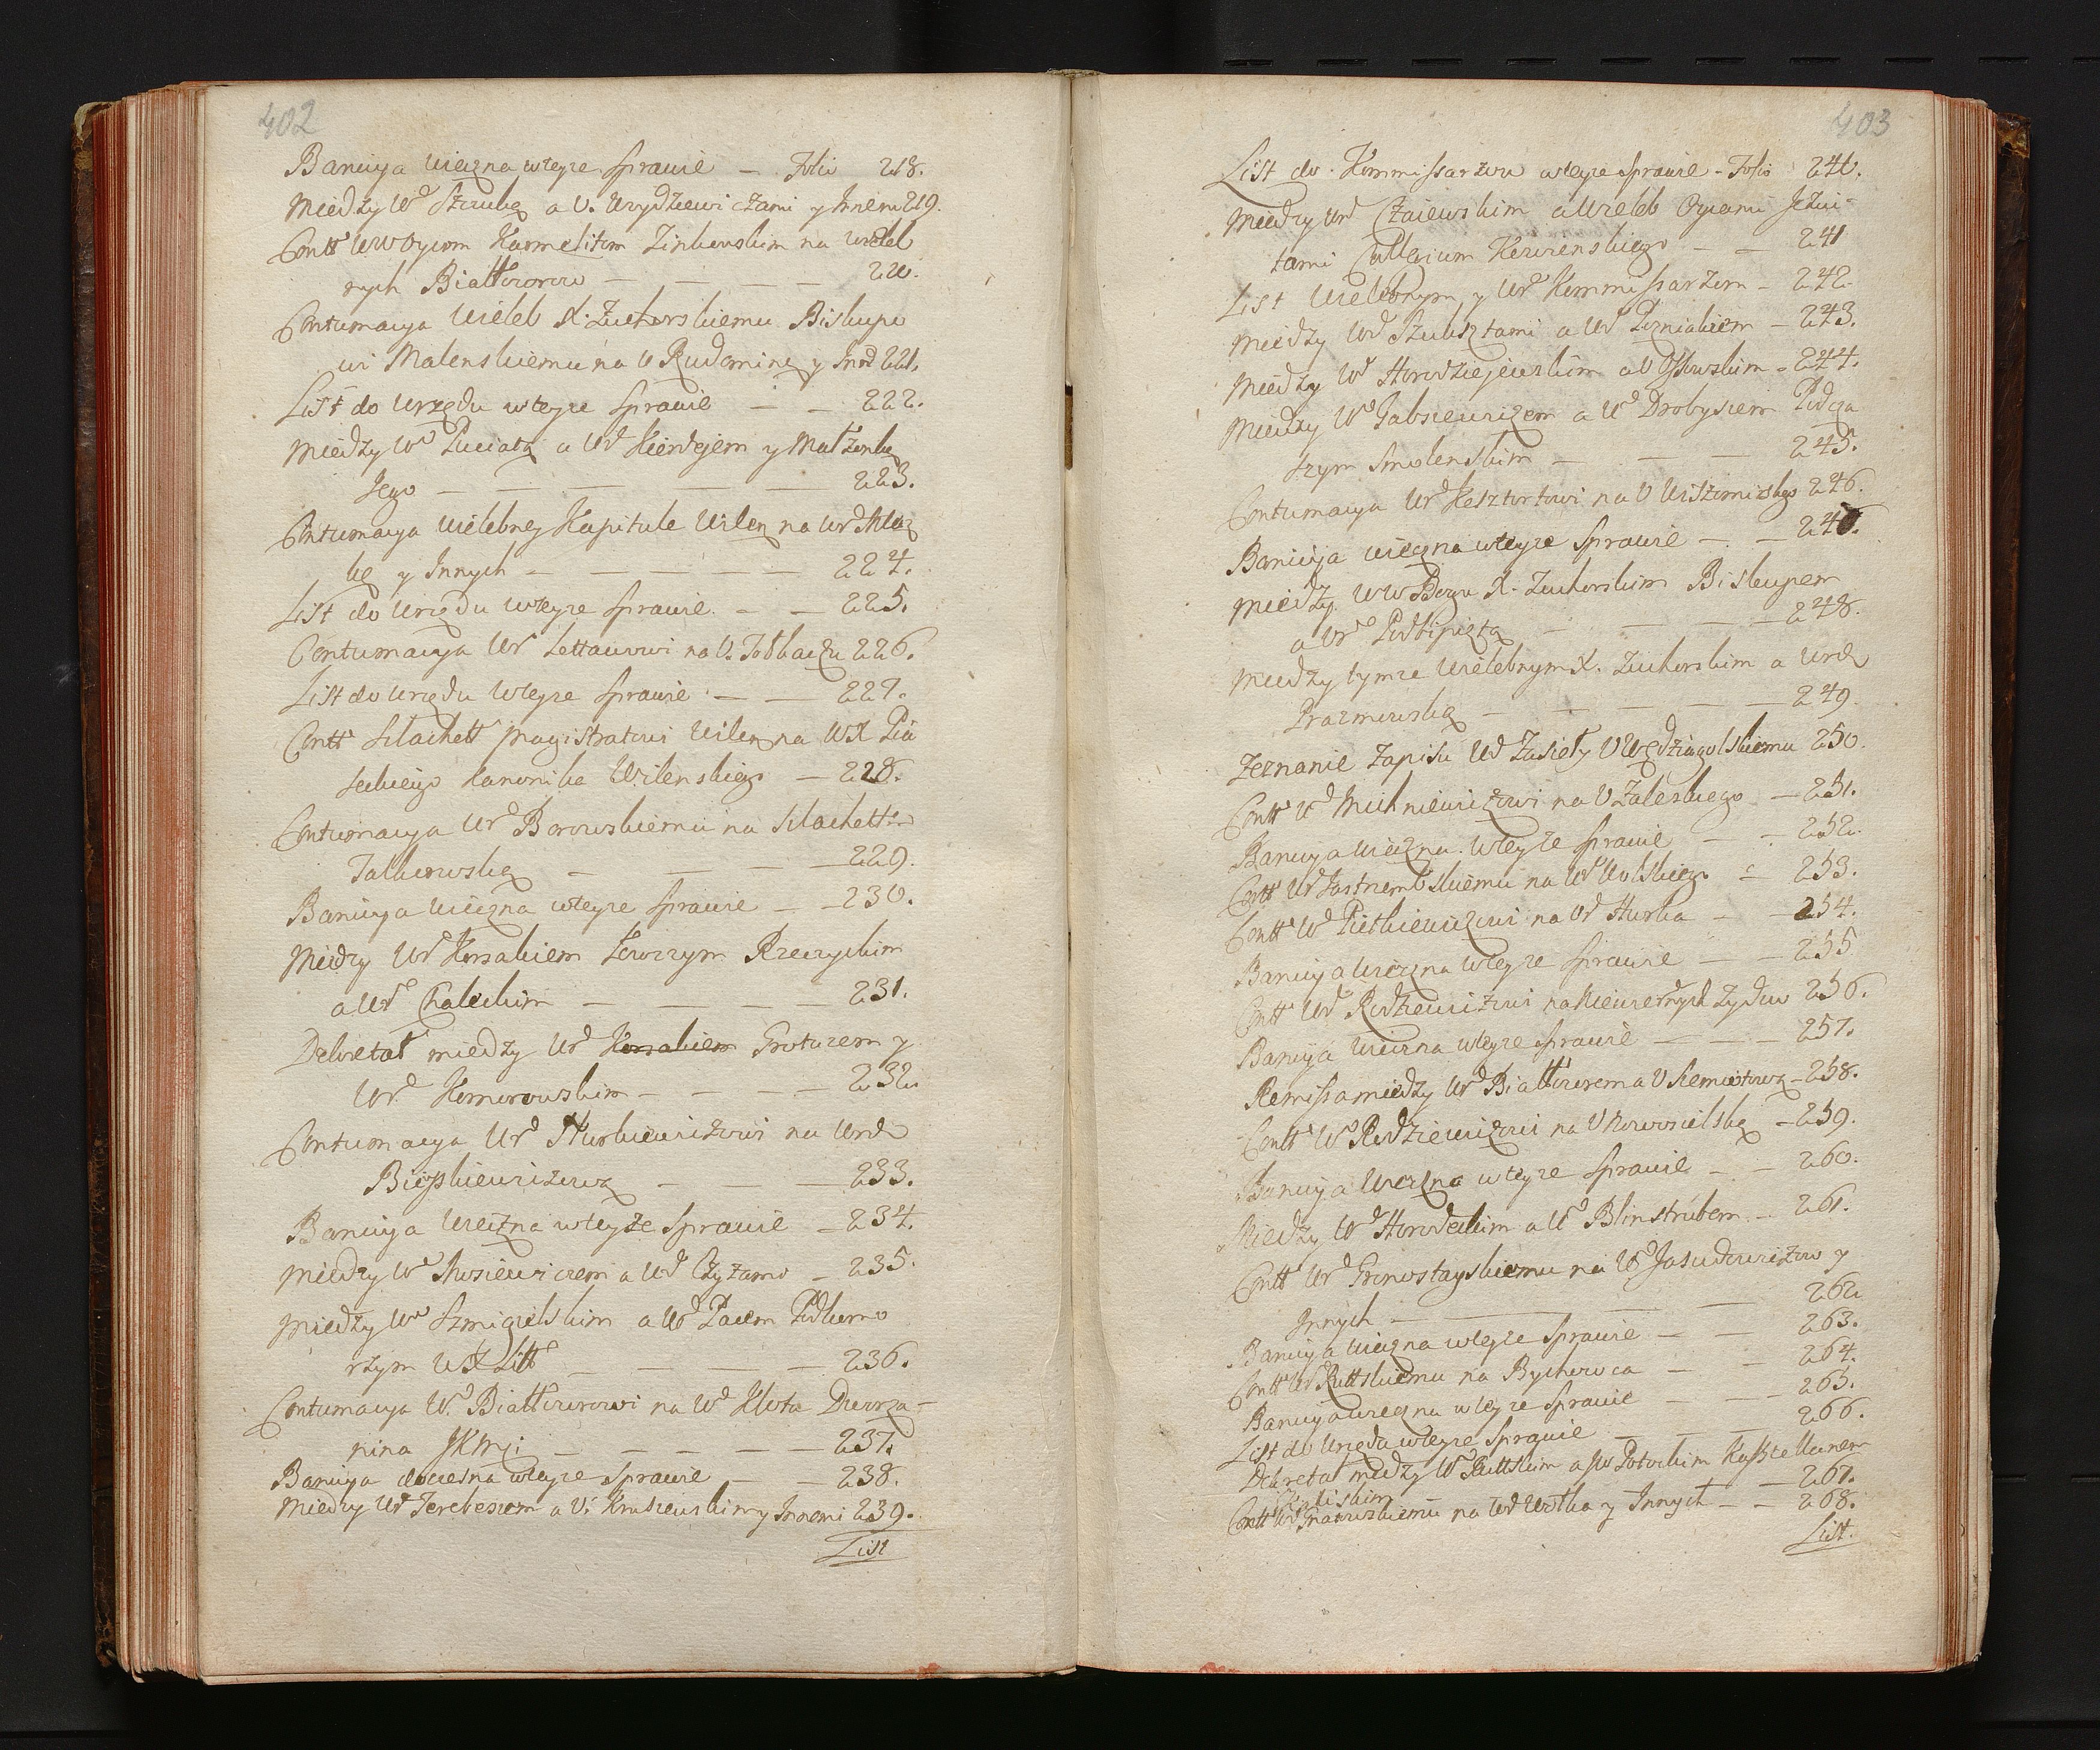 402
Banicya wieczna wteyze sprawie — Folio 218.
Między Wd Sztrubą a U. Urydziewiczami y Innemi 219.
Contt WW Oycom Karmelitom Linkowskim na wielebnych
nych Białłozorow — 220.
Contumacya Wieleb X. Zuchorskiemu Biskupo
wi Malenskiemu na U Rudominę y Innd 221.
List do Urzędu wteyze Sprawie — — 222.
Między Wd Puciatą a Urd Kierdejem y Małżonką
Jego — — — — 223.
Contumacya Wielebney Kapitule Wilen na Urd
bę y Innych — — — — 224.
List do Urzędu wteyze Sprawie — — 225.
Contumacya Urd Lettawowi na U. Tołkaczu 226.
List do Urzędu wteyze Sprawie — — 227.
Contt Szlachett Magistratowi Wilen na WX Pia
seckiego Kanonika Wilenskiego — 228.
Contumacya Urd Borowskiemu na Szlachettą
Talkowską — — — 229.
Banicya wieczna wteyze Sprawie — — 230.
Między Urd Korsakiem Łowczym Rzeczyckim
a Urd Chaleckim — — — 231.
Dekretał między Urd Korsakiem Grotuzem y
Urd Komorowskim — — — 232.
Contumacya Urd Nurkiewiczowi na Urdą
— — — 233.
Banicya wieczna wteyże Sprawie — 234.
Między Wd Musiewiczem a Urd Czyżami — 235.
Między Wd Szmigielskim a Wd Pacem Podkomo
rzym WXLitt — — — 236.
Contumacya W. Białłozorowi na Wd Kłota Dworza-
nina JKMci — — — — 237.
Banicya doczesna wteyze Sprawie — — 238.
Między Urd Jerebeszem a U. Kruszewskim y Innemi 239.
List
403
List do Kommissarzow wteyze sprawie - Folio 240.
Między Urd Czaiewskim a Wieleb Oycami Jezui-
tami Collegium — — 241
List Wielebnym y Urd Kommissarzom — 242.
Między Urd Szuksztami a Urd Pozniakiem — 243.
Między Wd Horodziejewskim a U Ossowskim - 244.
Między Wd Gabsiewiczem a Ud Drobyszem Podcza
szym Smolenskim — — — 245.
Contumacya Urd Kesztortowi na U Wiszomirskego 246.
Banicya wieczna wteyze Sprawie — — 246.
Między WW Bogu X. Zuchorskim Biskupem
a Urd Podbipiętą — — — 248.
Między tymze Wielebnym X. Zuchorskim a Urdą
Prazmowską — — — — 249.
Zeznanie Zapisu Ud Zusiety U Wędziagolskiemu 250.
Contt Ud Michniewiczowi na U Zaleskiego — 251.
Banicya wieczna wteyze Sprawie — — 252.
Contt Urd Jastrzembskiemu na Wd Wolskiego — 253.
Contt Wd Pietkiewiczowi na Urd Hurka — — 254.
Banicya wieczna wteyze Sprawie — — 255
Contt Urd Rodziewiczowi na Niewiernych Żydow 256.
Banicya wieczna wteyze Sprawie — — 257.
Remissa między Urd Białłozorem a U Siemiotową - 258.
Contt Wd Rodziewiczowi na U Nowosielską - 259.
Banicya Wieczna wteyze Sprawie — — 260.
Między Wd Horodeckim a Ud Blinstrubem — 261.
Contt Urd Gronostayskiemu na Wd Jasudowiczow y
Innych — — — — 262
Banicya wieczna wteyze Sprawie — — 263.
Contt Ud Ruttskiemu na Bychowca — — 264.
Banicya wieczna wteyze Sprawie — — 265.
List do Urzędu wteyze Sprawie — — 266.
Dekretał między Wd Ruttskim a JW Potockim Kasztellanem
— 267.
Contt Urd Inatowskiemu na Wd Wołka y Innych — — 268.
List.